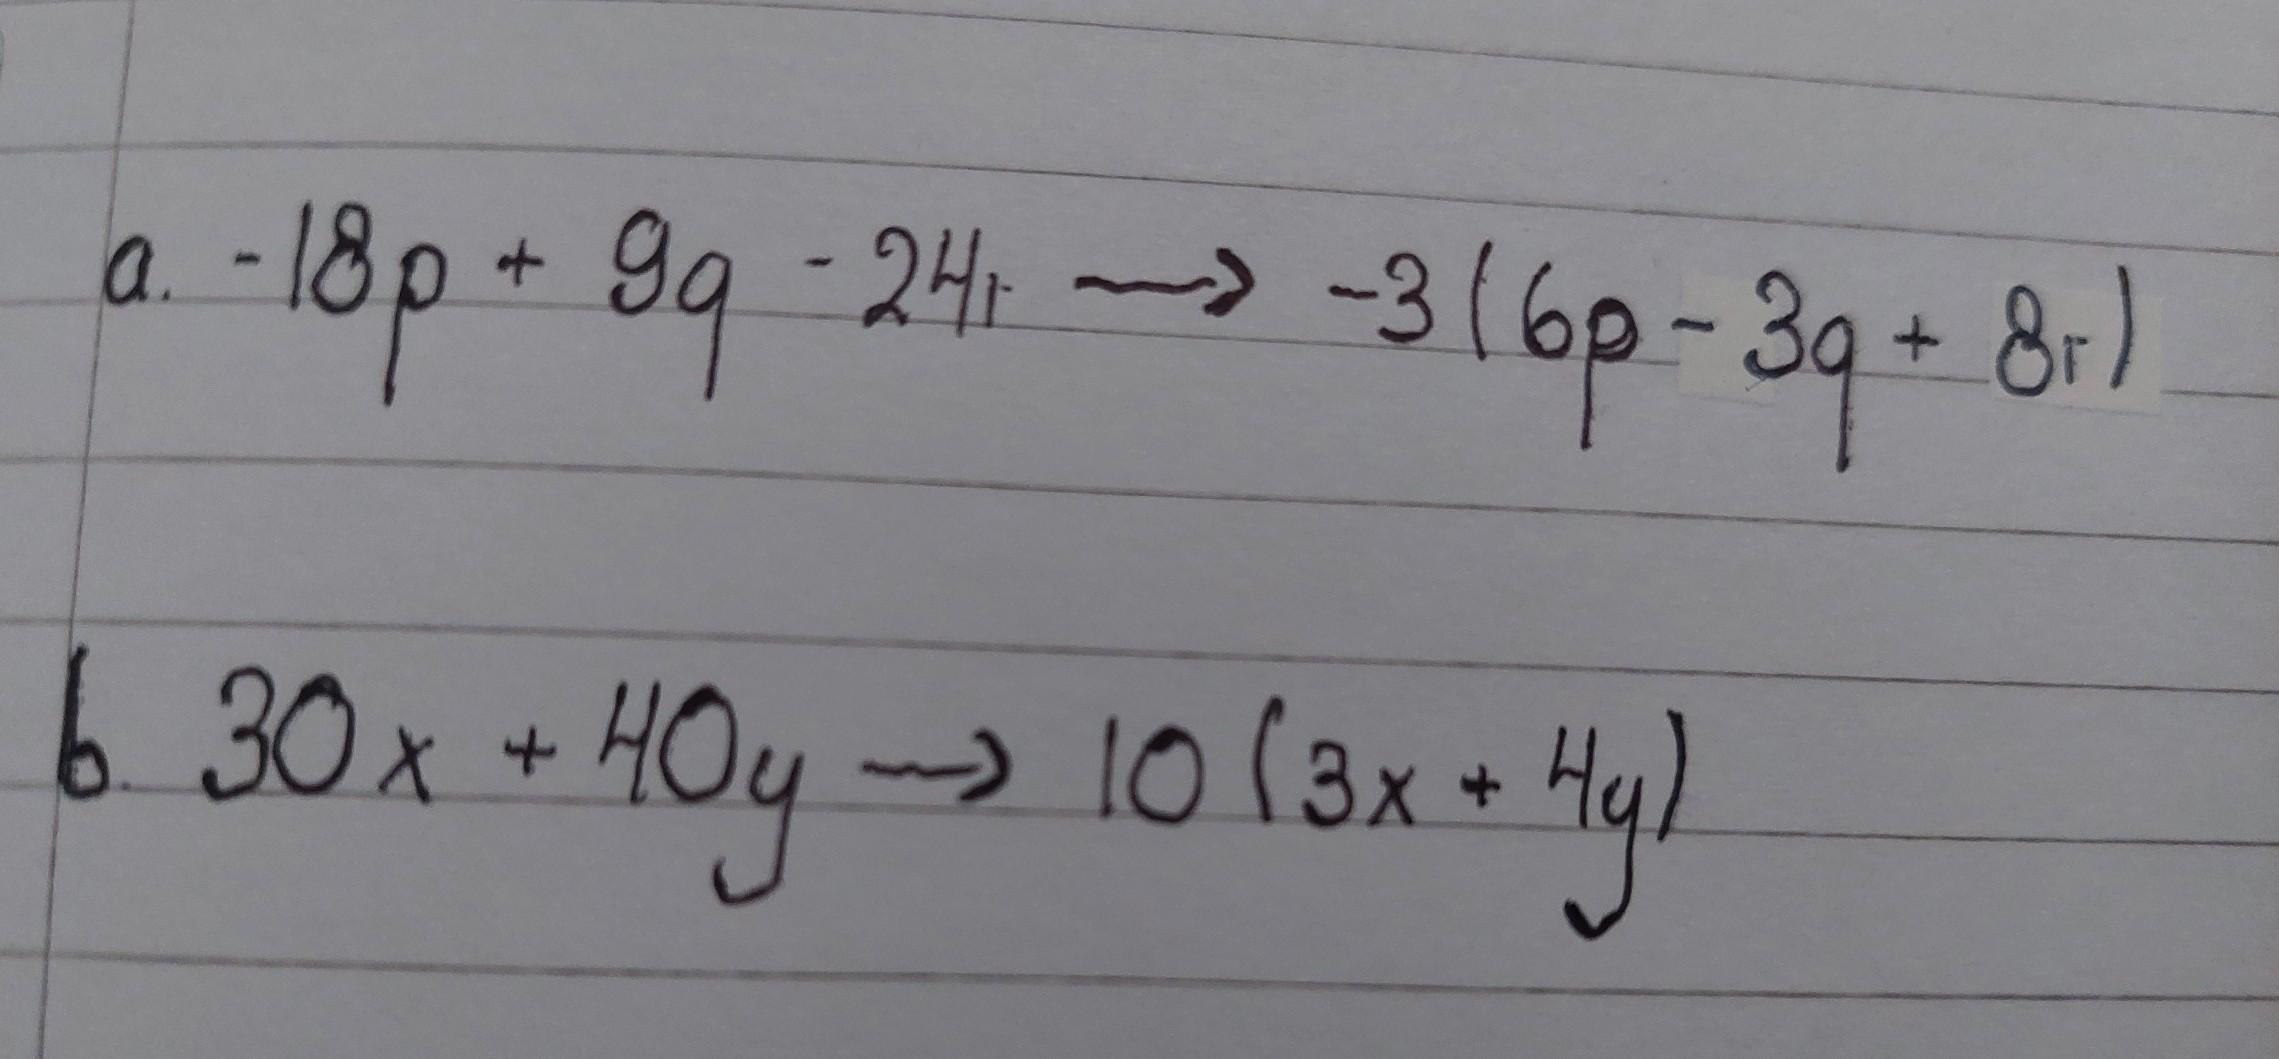 a. -18p + 9q - 24r → -3(6p - 3q + 8r)
b. 30x + 40y → 10(3x + 4y)